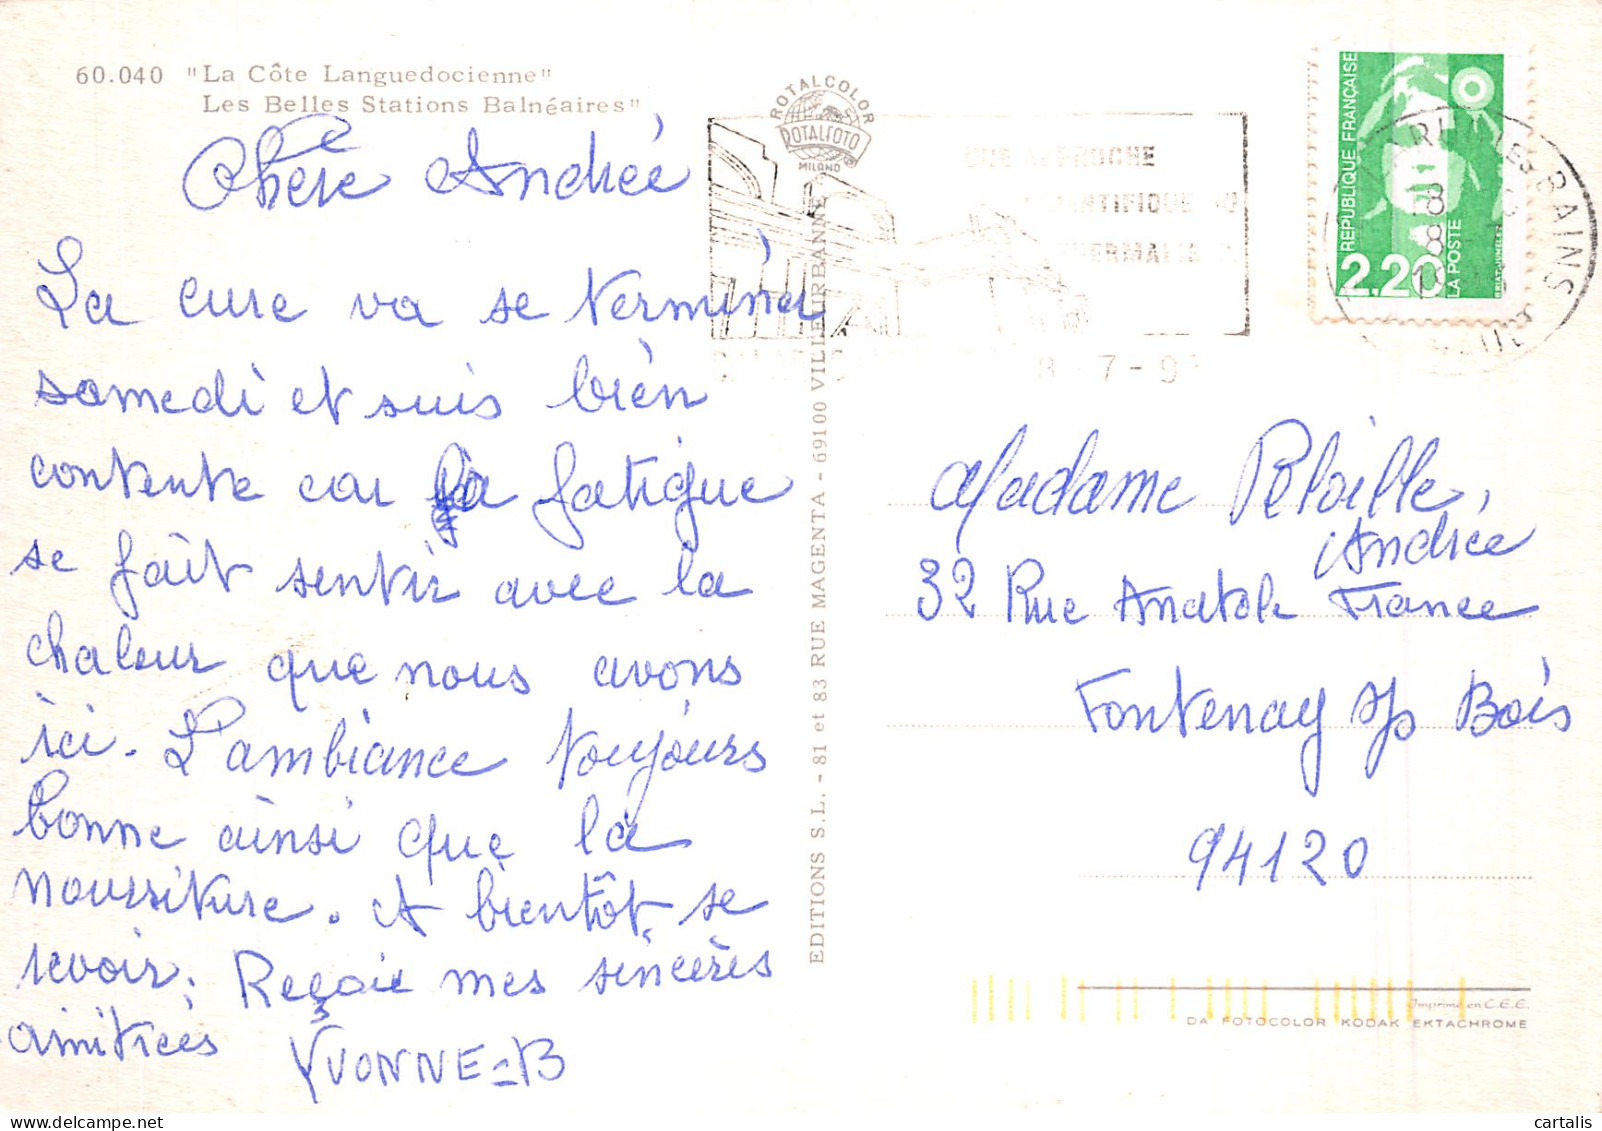 60.040 "La Côte Languedocienne"
Les Belles Stations Balnéaires"
Chère Andrée
La cure va se terminer
samedi et suis bien
contente car la fatigue
se fait sentir avec la
chaleur que nous avons
ici. L'ambiance toujours
bonne ainsi que la
nourriture. A bientôt se
revoir. Reçois mes sincères
amitiées YVONNE=B
EDITIONS S.L. - 81 et 83 RUE MAGENTA - 69100 VILLEURBANNE
ROTALCOLOR
ROTALFOTO
MILANO
UNE APPROCHE
8-7-9
REPUBLIQUE FRANÇAISE
2,20
LA POSTE
BAINS
18
Madame
Andrée
32 Rue Anatole France
Fontenay s/s Bois
94120
Imprimé en C.E.E.
DA FOTOCOLOR KODAK EKTACHROME
cartalis